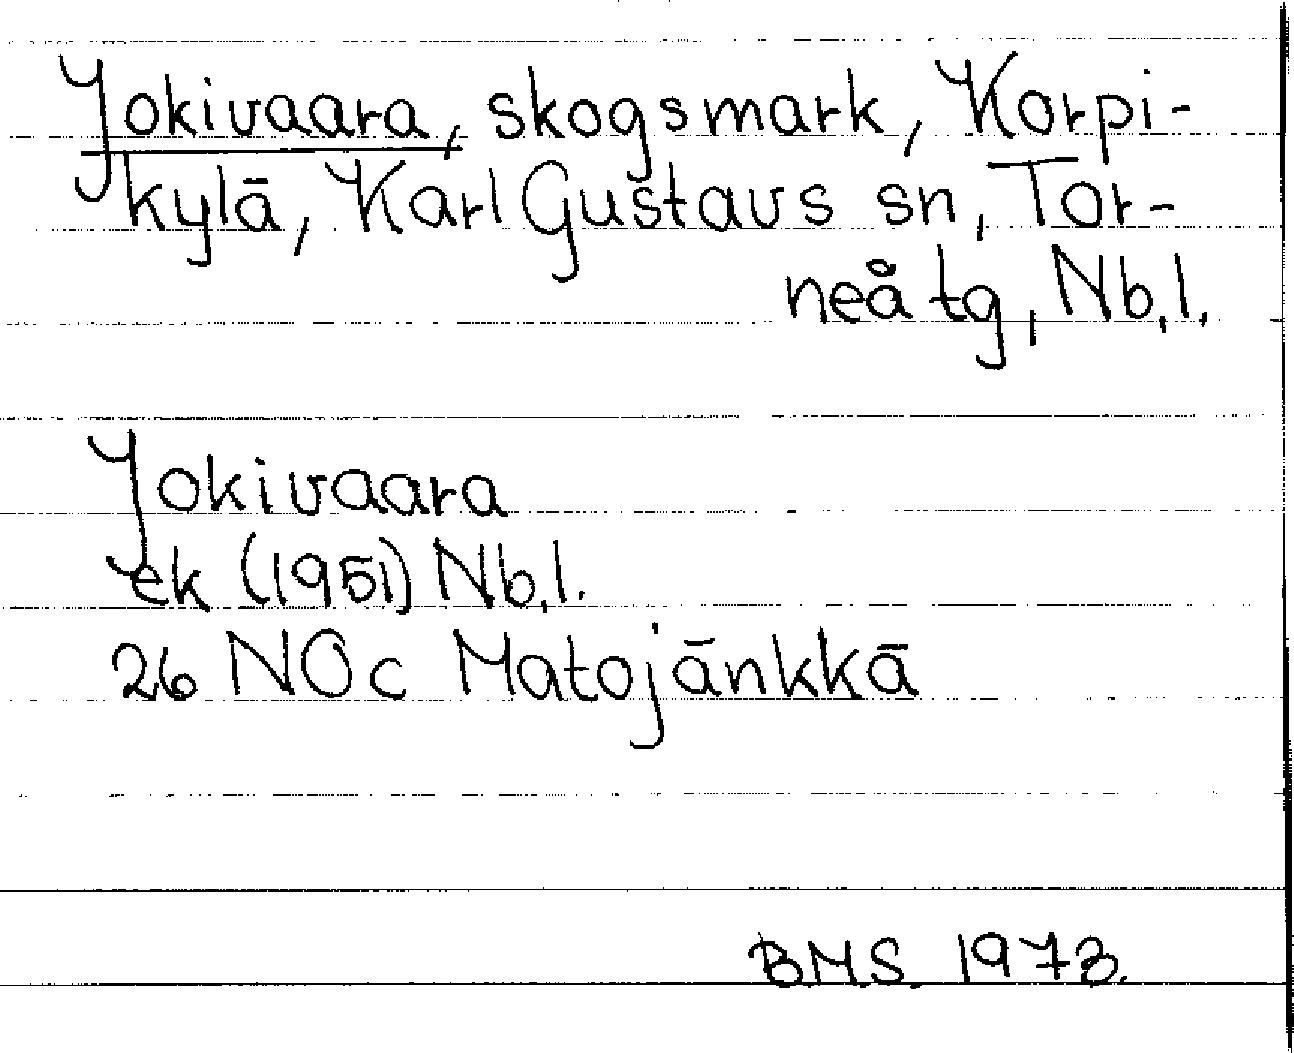 Jokivaara, skogsmark, Korpi-
kylä, Karl Gustavs sn, Tor-
neå tg, Nb.l.
Jokivaara
ek (1951) Nb.l.
26 NOc Matojänkkä
BMS. 1973.